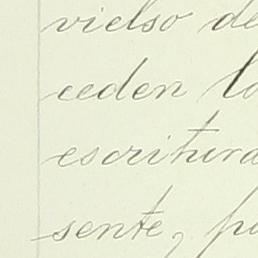 vielso de
ceden lo
escritura
sente, po